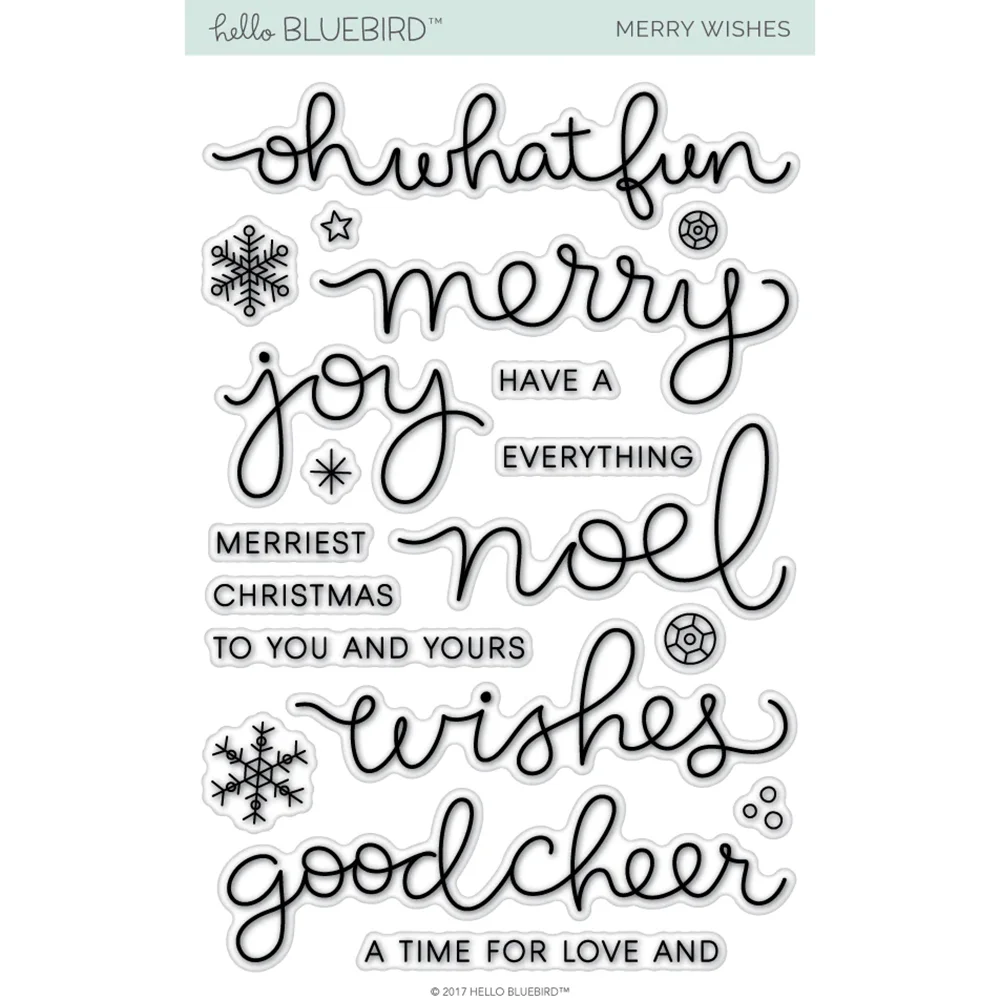 hello BLUEBIRD™ MERRY WISHES
oh what fun
merry
joy
HAVE A
EVERYTHING
noel
MERRIEST
CHRISTMAS
TO YOU AND YOURS
wishes
good cheer
A TIME FOR LOVE AND
© 2017 HELLO BLUEBIRD™